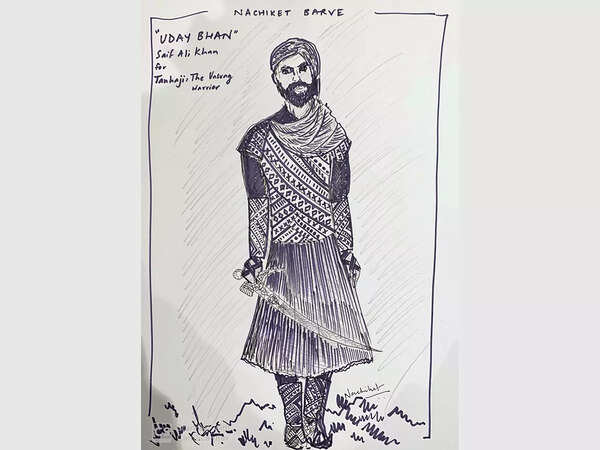 NACHIKET BARVE
"UDAY BHAN"
Saif Ali Khan
for
Tanhaji: The Unsung
Warrior
Nachiket